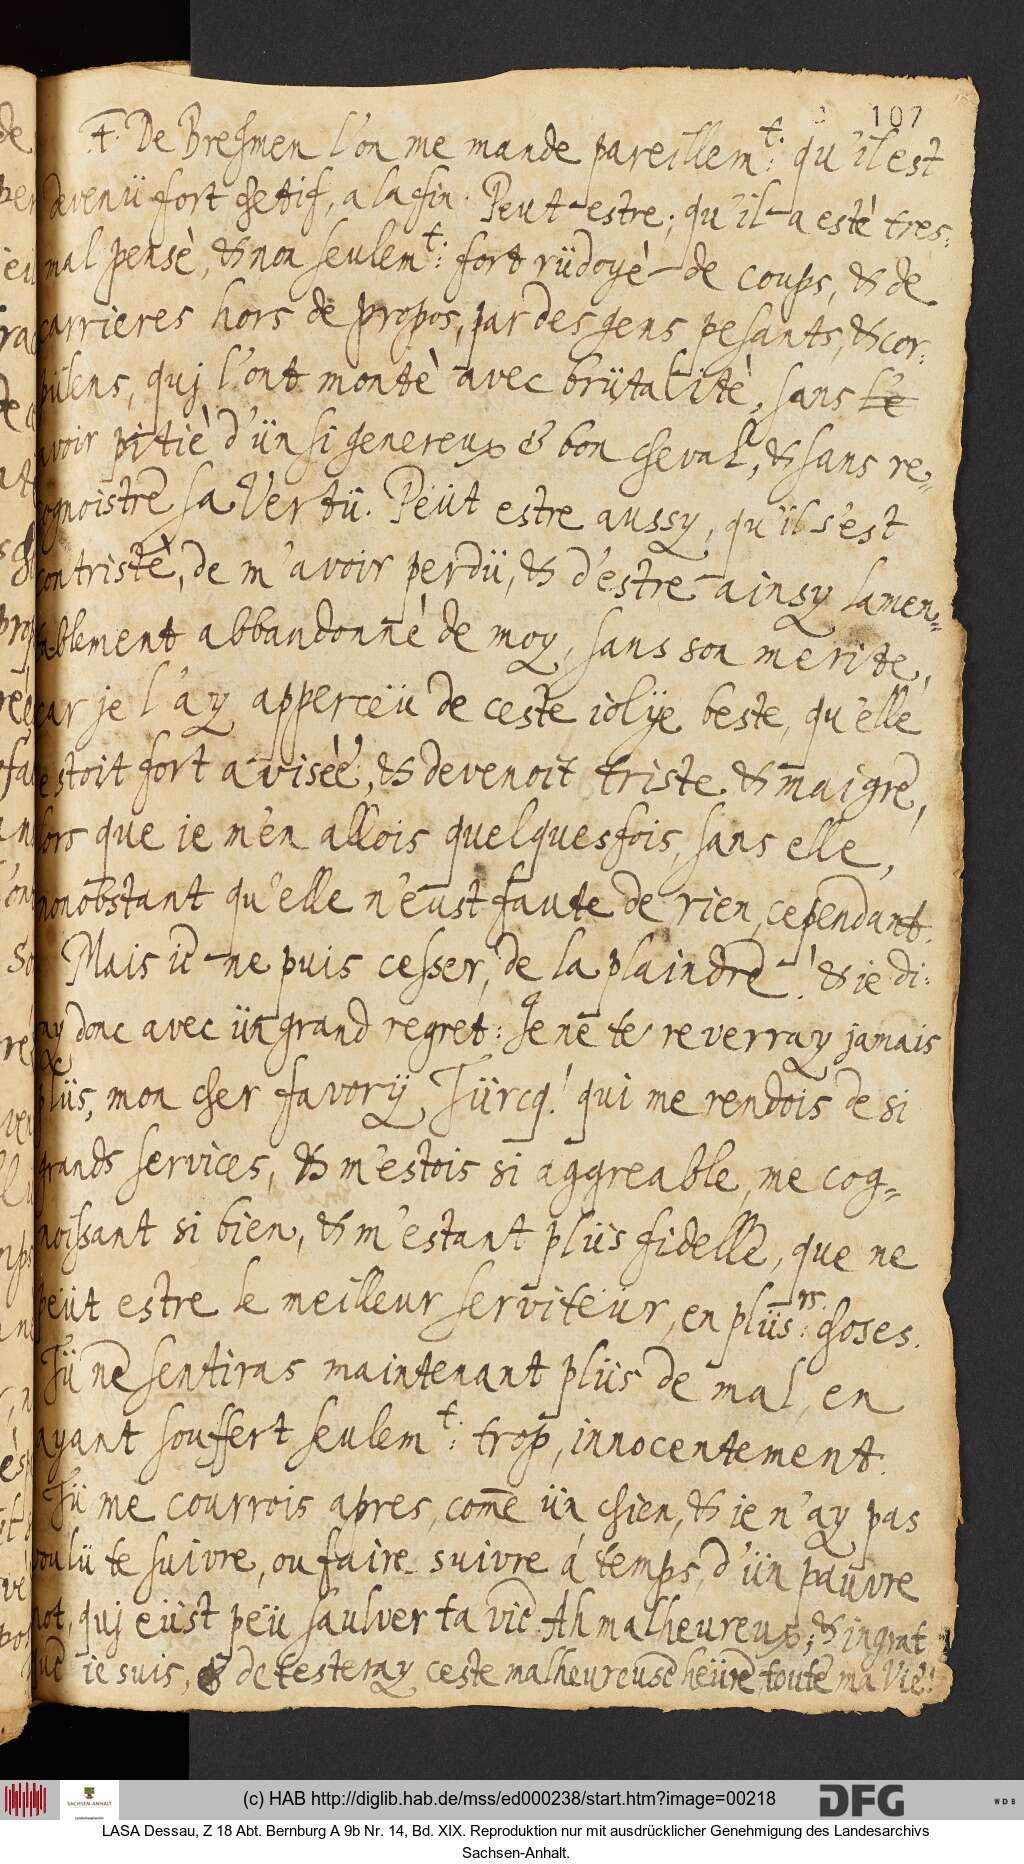 107
4. De Brehmen l'on me mande pareillem^t: qu'il est
devenü fort chetif, a la fin. Peut-estre, qu'il-a estè tres-
mal pensè, & non seulem^t: fort rüdoyè-de coups, & de
carrieres hors de propos, par des gens pesants, & cor-
pülens, quj l'ont montè avec brütalitè, sans le
avoir pitiè d'ün si genereux & bon cheval, & sans re-
cognoistre sa Vertü. Peüt estre aussy, qu'il s'est
contristè, de m'avoir perdü, & d'estre-ainsy lamen-
tablement abbandonnè de moy, sans son merite,
car je l'ay apperceü de ceste iolije beste, qu'elle
estoit fort avisèè, & devenoit triste & maigre,
lors que ie m'en allois quelquesfois, sans elle,
nonobstant qu'elle n'eust faute de rien, cependant.
Mais ie-ne puis cesser, de la plaindre-! & ie di-
ray donc avec ün grand regret: Je ne te reverray jamais
plüs, mon cher favorij Türcq! qui me rendois de si
grands services, & m'estois si aggreable, me cog-
noissant si bien, & m'estant plüs fidelle, que ne
peüt estre le meilleur serviteür, en plüs^rs: choses.
Tü ne sentiras maintenant plüs de mal, en
ayant souffert seulem^t: trop, innocentement.
Tü me courrois apres, come ün chien, & ie n'ay pas
voulü te suivre, ou faire suivre á temps, d'ün pauvre
mot, quj eüst peü saulver ta vie. Ah malheureux, & ingrat
que ie suis, & detesteray ceste malheureuse heüre, toute ma Vie!
(c) HAB http://diglib.hab.de/mss/ed000238/start.htm?image=00218
SACHSEN-ANHALT
DFG
WDB
LASA Dessau, Z 18 Abt. Bernburg A 9b Nr. 14, Bd. XIX. Reproduktion nur mit ausdrücklicher Genehmigung des Landesarchivs
Sachsen-Anhalt.